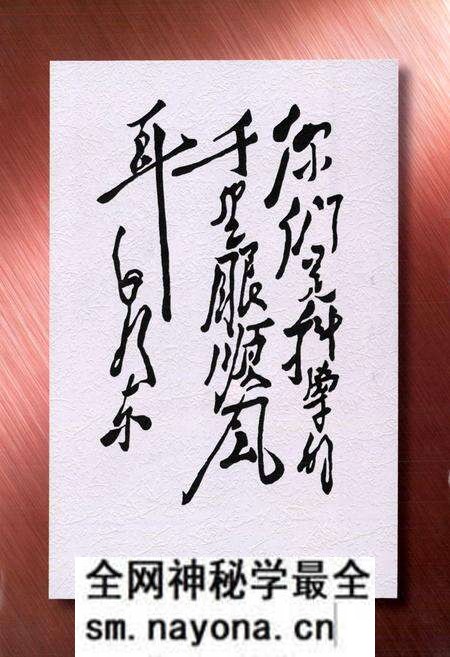 你们是科学的
千里眼顺风
耳 毛泽东
全网神秘学最全
sm.nayona.cn